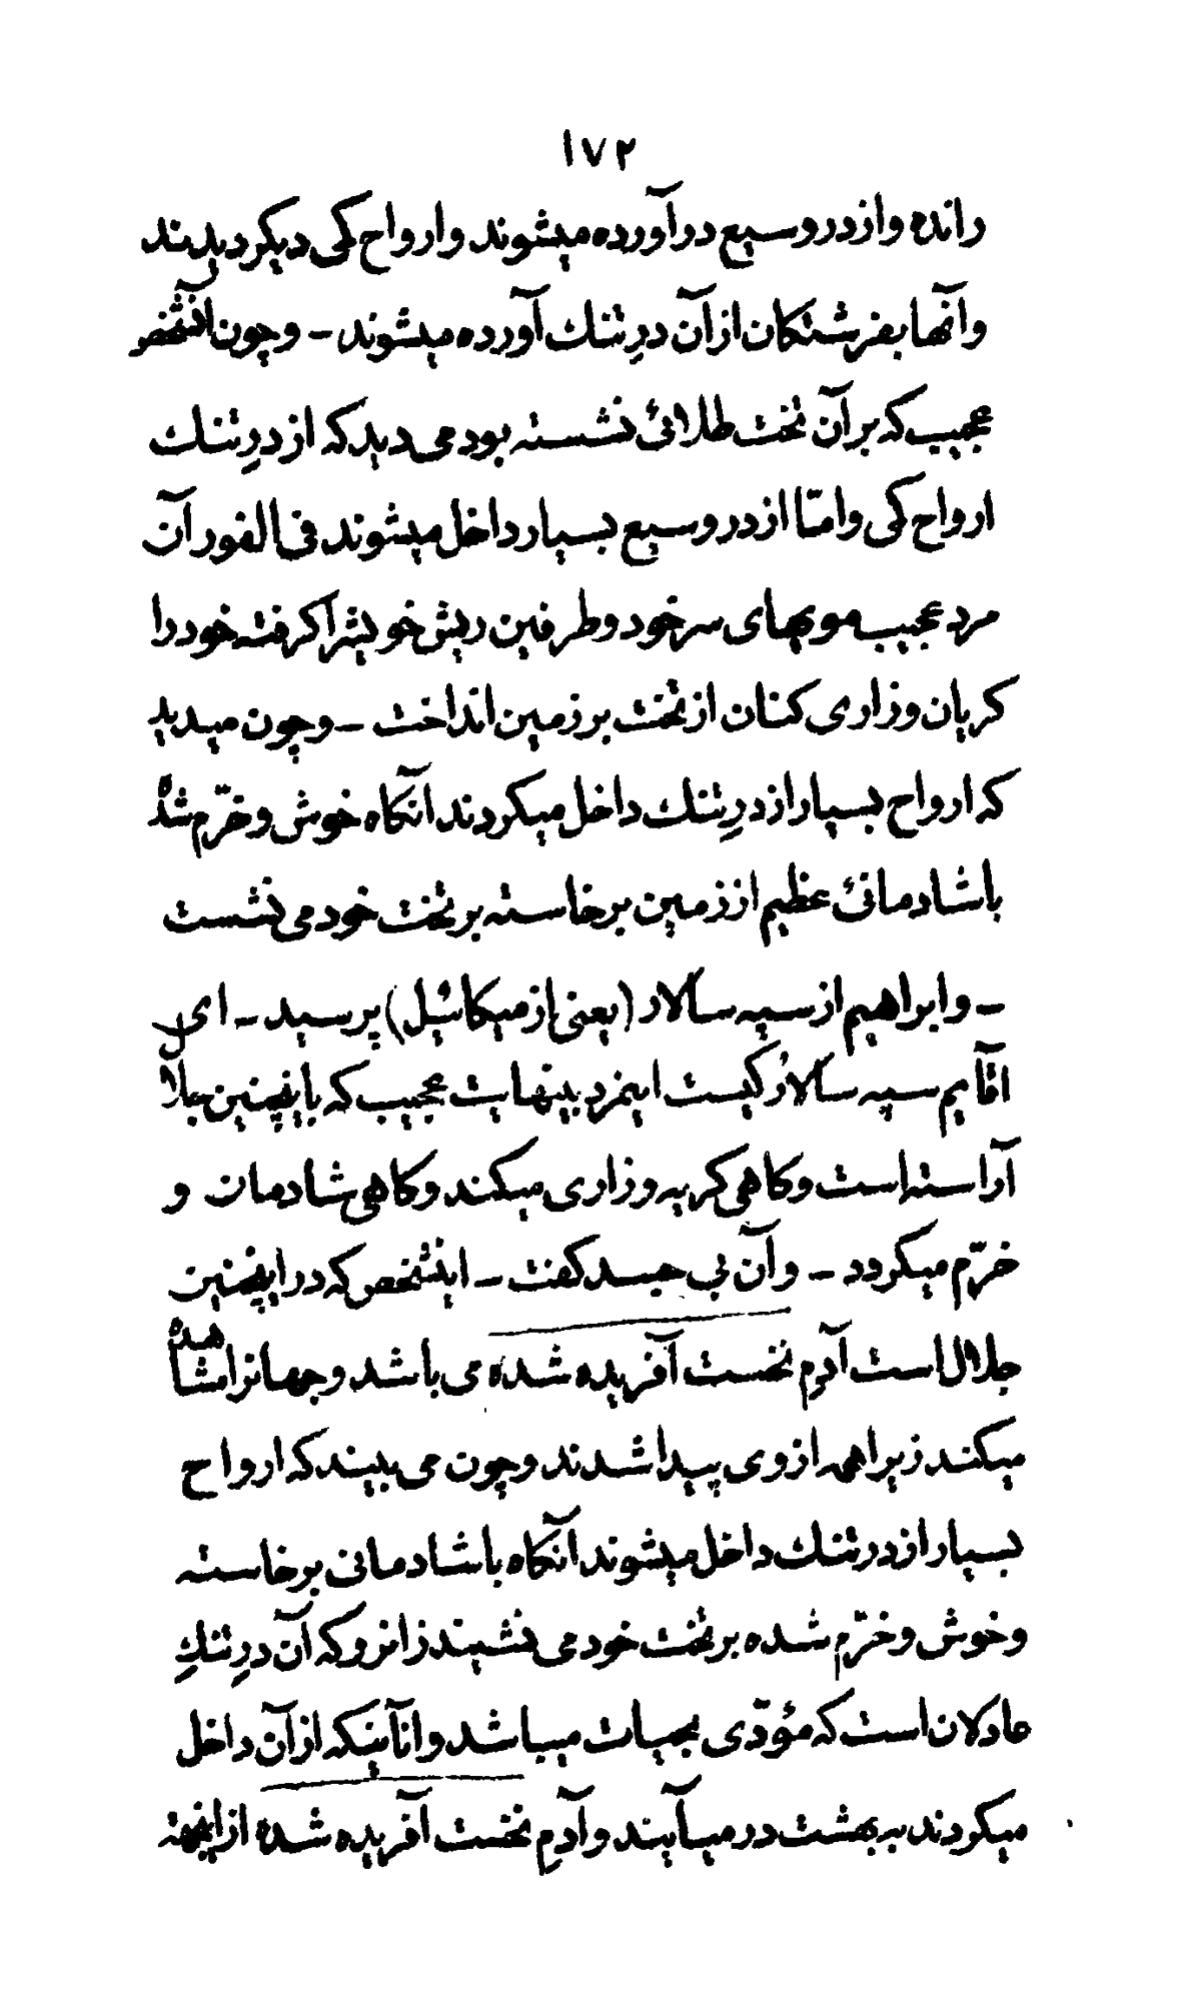 ۱۷۲
رانده و از در وسیع در آورده میشوند و ارواح کمی دیکر دیدند
و آنها بفرشتکان از آن درِ تنك آورده میشوند - و چون آنشخص
عجیب که بر آن تخت طلائی نشسته بود می دید که از درِ تنك
ارواح کمی و امّا از در وسیع بسیار داخل میشوند فی الفور آن
مرد عجیب مویهای سر خود و طرفین ریش خویشرا کرفته خود را
کریان و زاری کنان از تخت بر زمین انداخت - و چون میدید
که ارواح بسیار از درِ تنك داخل میکردند آنکاه خوش و خرّم شده
با شادمانئ عظیم از زمین برخاسته بر تخت خود می نشست
- و ابراهیم از سپه سالار (یعنی از میکائیل) پرسید - ای
آقایم سپه سالار کیست اینمرد بینهایت عجیب که باینچنین جلال
آراسته است و کاهی کریه و زاری میکند و کاهی شادمان و
خرّم میکردد - و آن بی جسد کفت - اینشخص که در اینچنین
جلال است آدم نخست آفریده شده می باشد و جهانرا مشاهده
میکند زیرا همه از وی پیدا شدند و چون می بیند که ارواح
بسیار از در تنك داخل میشوند آنکاه با شادمانی برخاسته
و خوش و خرّم شده بر تخت خود می نشیند زانرو که آن درِ تنكِ
عادلان است که مؤدّی بحیات میباشد و آنانیکه از آن داخل
میکردند به بهشت در میآیند و آدمِ نخست آفریده شده از اینجهة